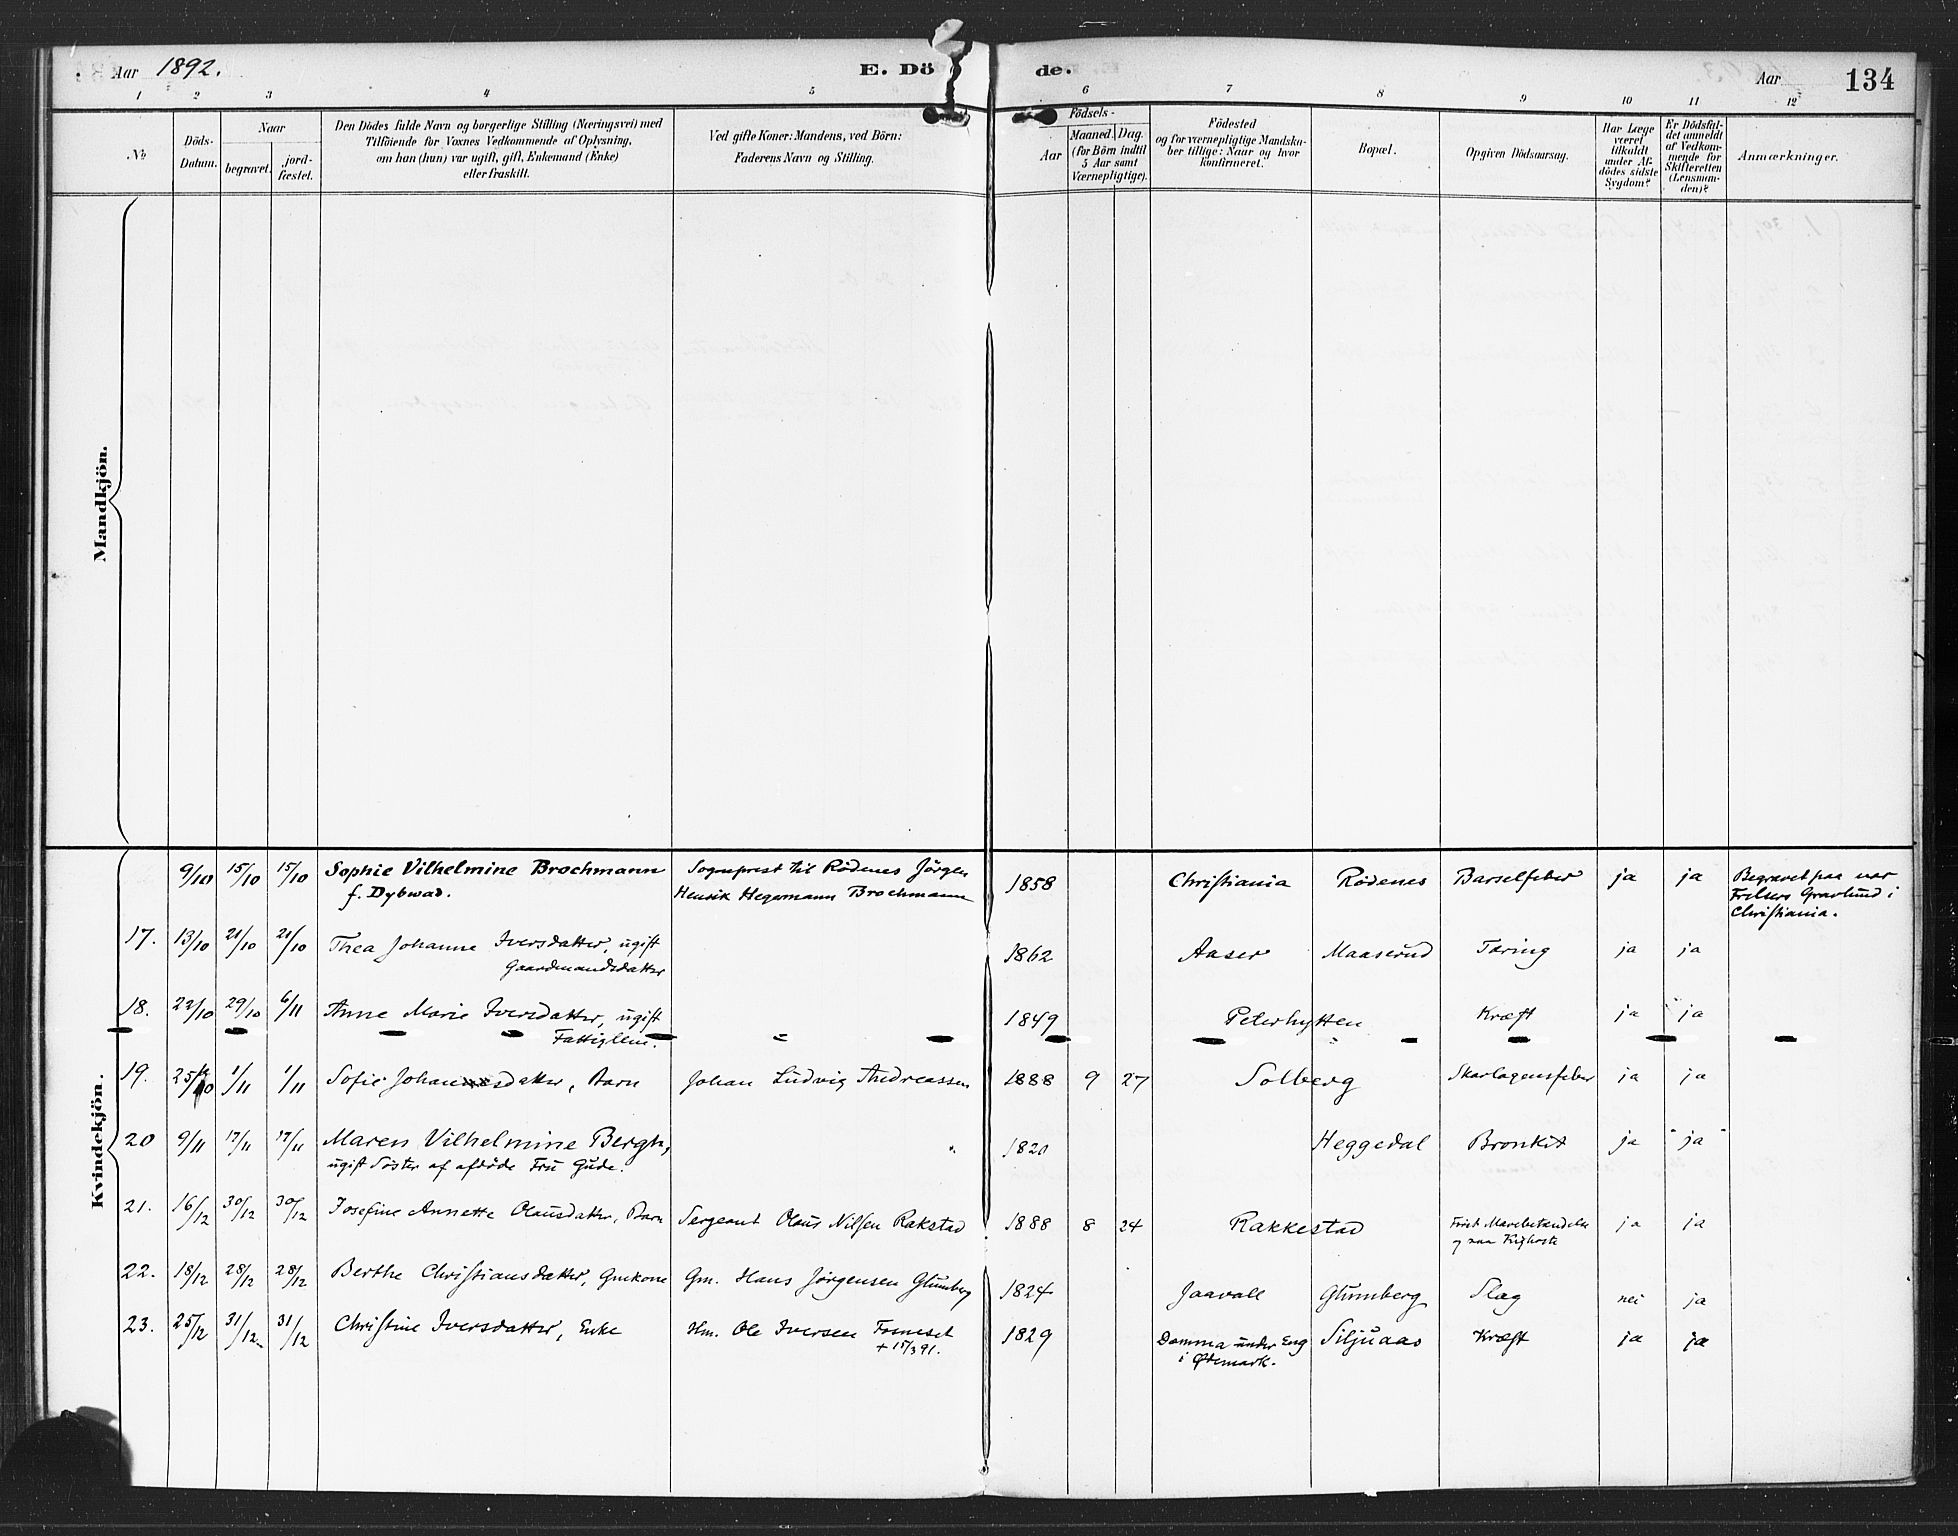 Aar 1892.
E. Dö
de.
Aar
134
1 2 3 4 5 6 7 8 9 10 11 12
No
Döds-
Datum.
Naar
begravet.
jord-
fæstet.
Den Dödes fulde Navn og borgerlige Stilling (Næringsvei) med
Tilföiende for Voxnes Vedkommende af Oplysning,
om han (hun) var ugift, gift, Enkemand (Enke)
eller fraskilt.
Ved gifte Koner: Mandens, ved Börn:
Faderens Navn og Stilling.
Födsels-
Aar
Maaned. Dag.
(for Börn indtil
5 Aar samt
Værnepligtige).
Födested
og for værnepligtige Mandska-
ber tillige: Naar og hvor
konfirmeret.
Bopæl.
Opgiven Dödsaarsag.
Har Læge
været
tilkaldt
under Af-
dödes sidste
Sygdom?
Er Dödsfal-
det anmeldt
af Vedkom-
mende for
Skifteretten
(Lensman-
den)?
Anmærkninger.
Mandkjön.
Kvindekjön.
9/10 15/10 15/10 Sophie Vilhelmine Brochmann Sogneprest til Rödenes Jörgen 1858 Christiania Rödenes Barselfeber ja ja Begravet paa vor
f. Dybwad. Henrik Hegermann Brochmann Frelsers Gravlund i
Christiania.
17. 13/10 21/10 21/10 Thea Johanne Iversdatter, ugift 1862 Aaser Maaserud Tæring ja ja
Gaardmandsdatter
18. 22/10 29/10 6/11 Anne Marie Iversdatter, ugift 1849 Peterhytten Kræft ja ja
Fattiglem.
19. 25/10 1/11 1/11 Sofie Johansdatter, Barn Johan Ludvig Andreassen 1888 9 27 Solberg Skarlagensfeber ja ja
20 9/11 17/11 17/11 Maren Vilhelmine Bergh, " 1820 Heggedal Bronkit ja "ja"
ugift Söster af afdöde Fru Gude.
21. 16/12 30/12 30/12 Josefine Annette Olausdatter, Barn Sergeant Olaus Nilsen Rakstad 1888 8 24 Rakkestad Först Mavebetændelse ja ja
og saa Kighoste
22. 18/12 28/12 28/12 Berthe Christiansdatter, Gmkone Gm. Hans Jörgensen Glumberg 1824 Jaavall Glumberg Slag nei ja
23. 25/12 31/12 31/12 Christine Iversdatter, Enke Hm. Ole Iversen Fosneset 1829 Damma under Eng Siljuaas Kræft ja ja
+ 15/3 91. i Ødemark.